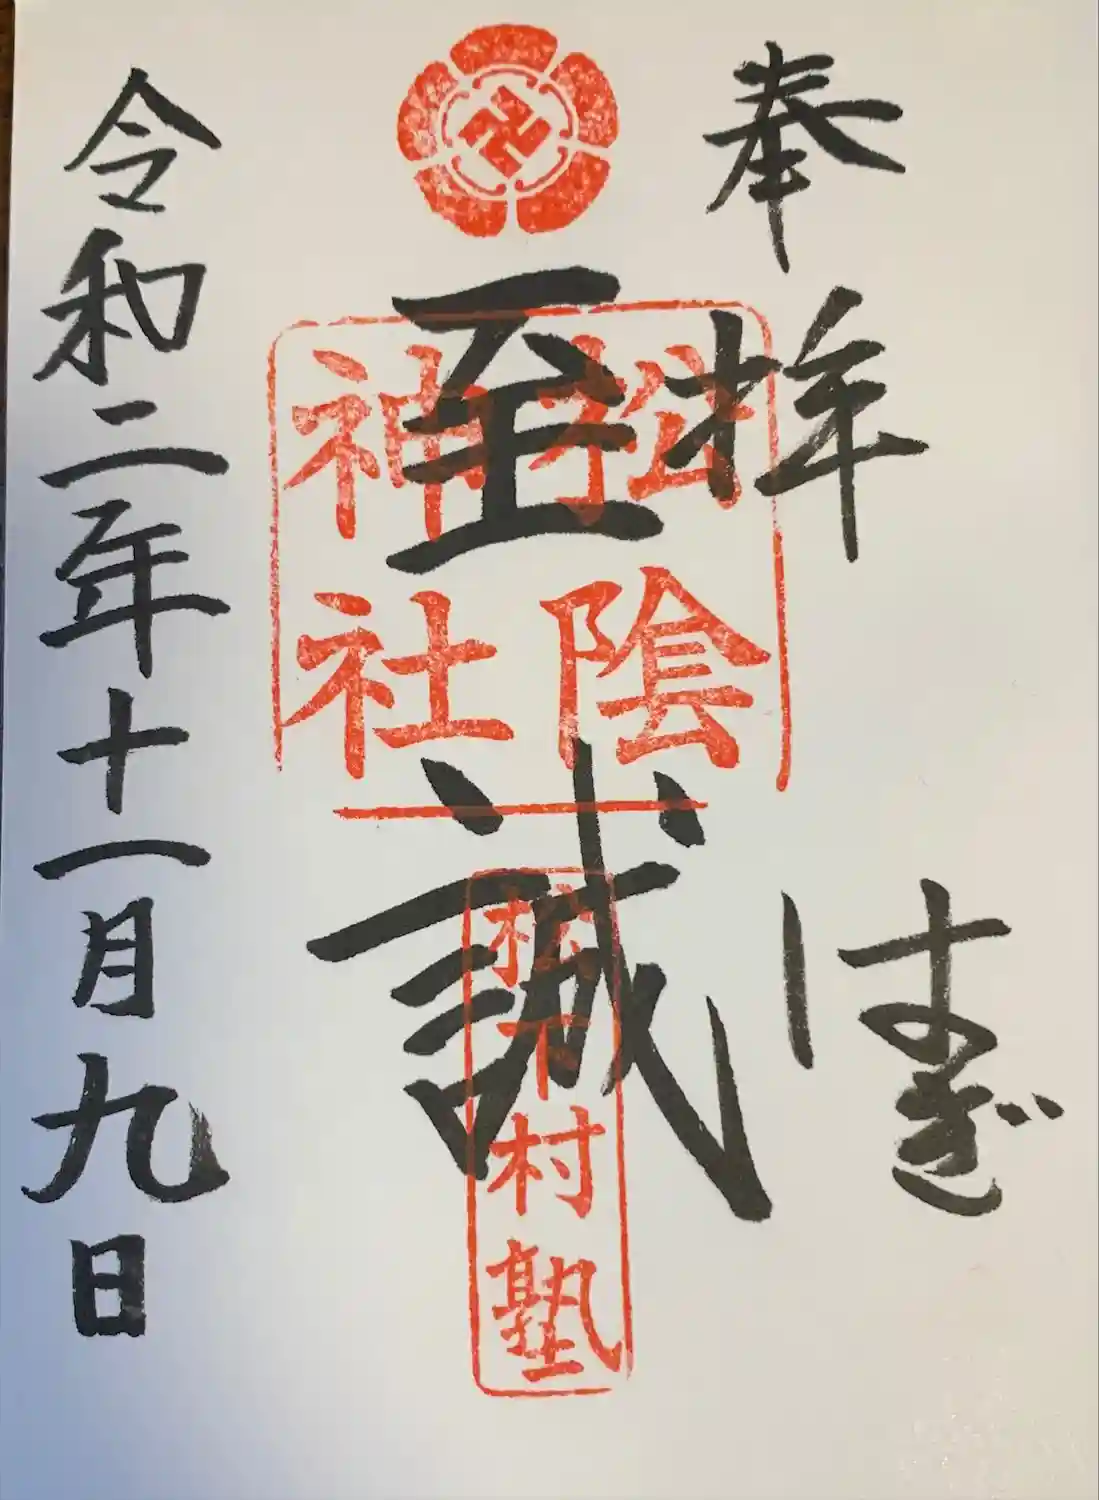 奉拝
はぎ
至誠
松陰
神社
松下村塾
令和二年十一月九日